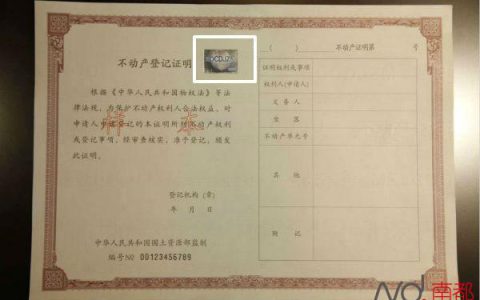 不动产登记证明
BDCDJZM
根据《中华人民共和国物权法》等法
律法规，为保护不动产权利人合法权益，对
申请人申请登记的本证明所列不动产权利
或登记事项，经审查核实，准予登记，颁发
此证明。
样本
登记机构（章）
年 月 日
中华人民共和国国土资源部监制
编号NO 00123456789
（ ） 不动产证明第 号
证明权利或事项
权利人(申请人)
义务人
坐落
不动产单元号
其他
附记
南都